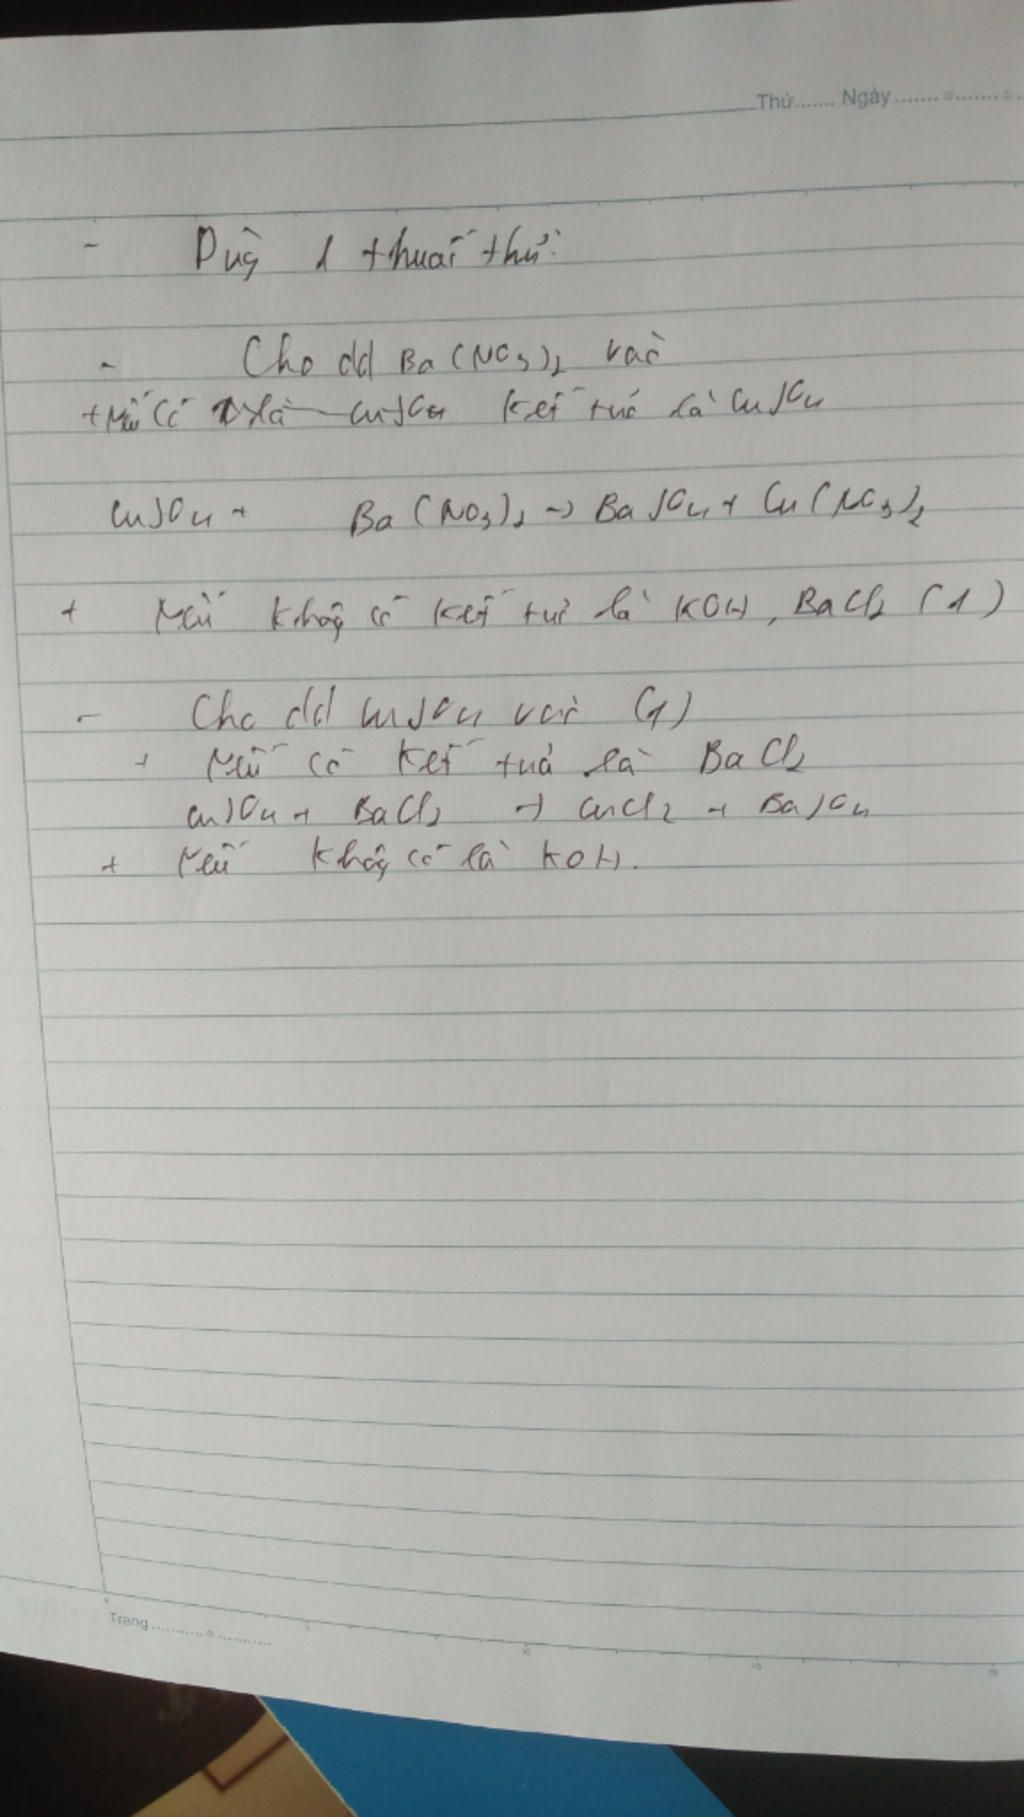 Thứ....... Ngày.......
- Dùng 1 thuốc thử:
- Cho dd Ba(NO3)2 vào
+ Nếu có kết tủa là CuSO4
CuSO4 + Ba(NO3)2 -> BaSO4 + Cu(NO3)2
+ Nếu không có kết tủa là KOH, BaCl2 (1)
- Cho dd CuSO4 vào (1)
+ Nếu có kết tủa là BaCl2
CuSO4 + BaCl2 -> CuCl2 + BaSO4
+ Nếu không có là KOH.
Trang